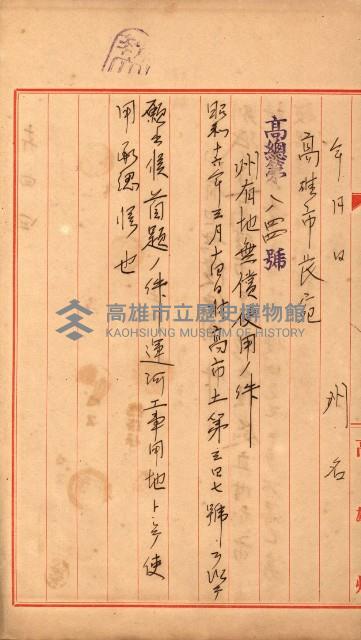 年月日
州名
高雄市長宛
高總第一八四四號
州有地無償使用ノ件
昭和十六年三月十四日附高市土第三四七號ヲ以テ
願出候首題ノ件運河工事用地トシテ使
用承認候也
高雄州
高雄市立歷史博物館
KAOHSIUNG MUSEUM OF HISTORY